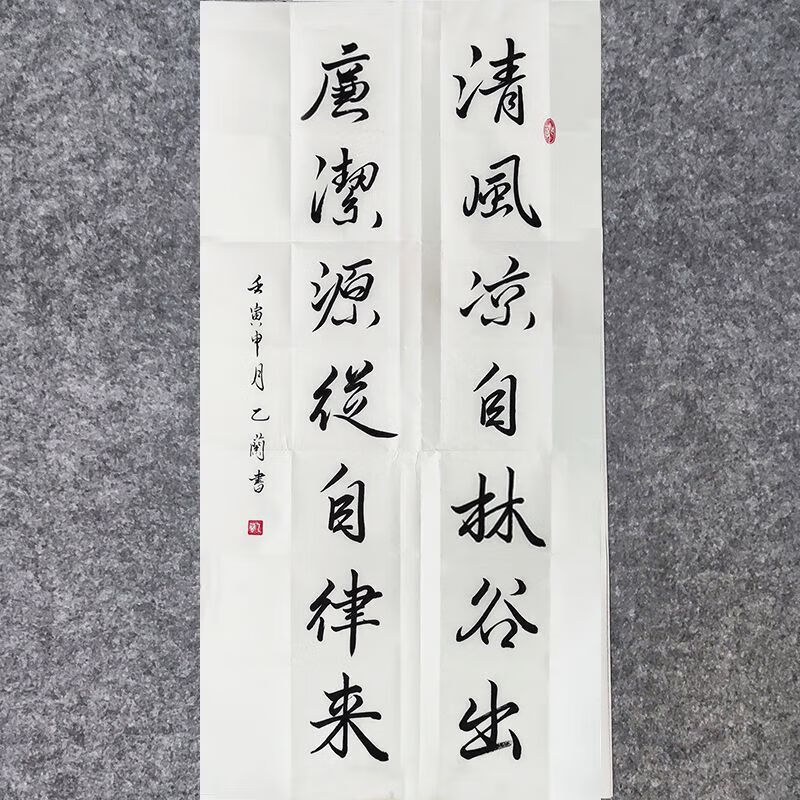 清風凉自林谷出
廉潔源從自律来
壬寅申月乙蘭書